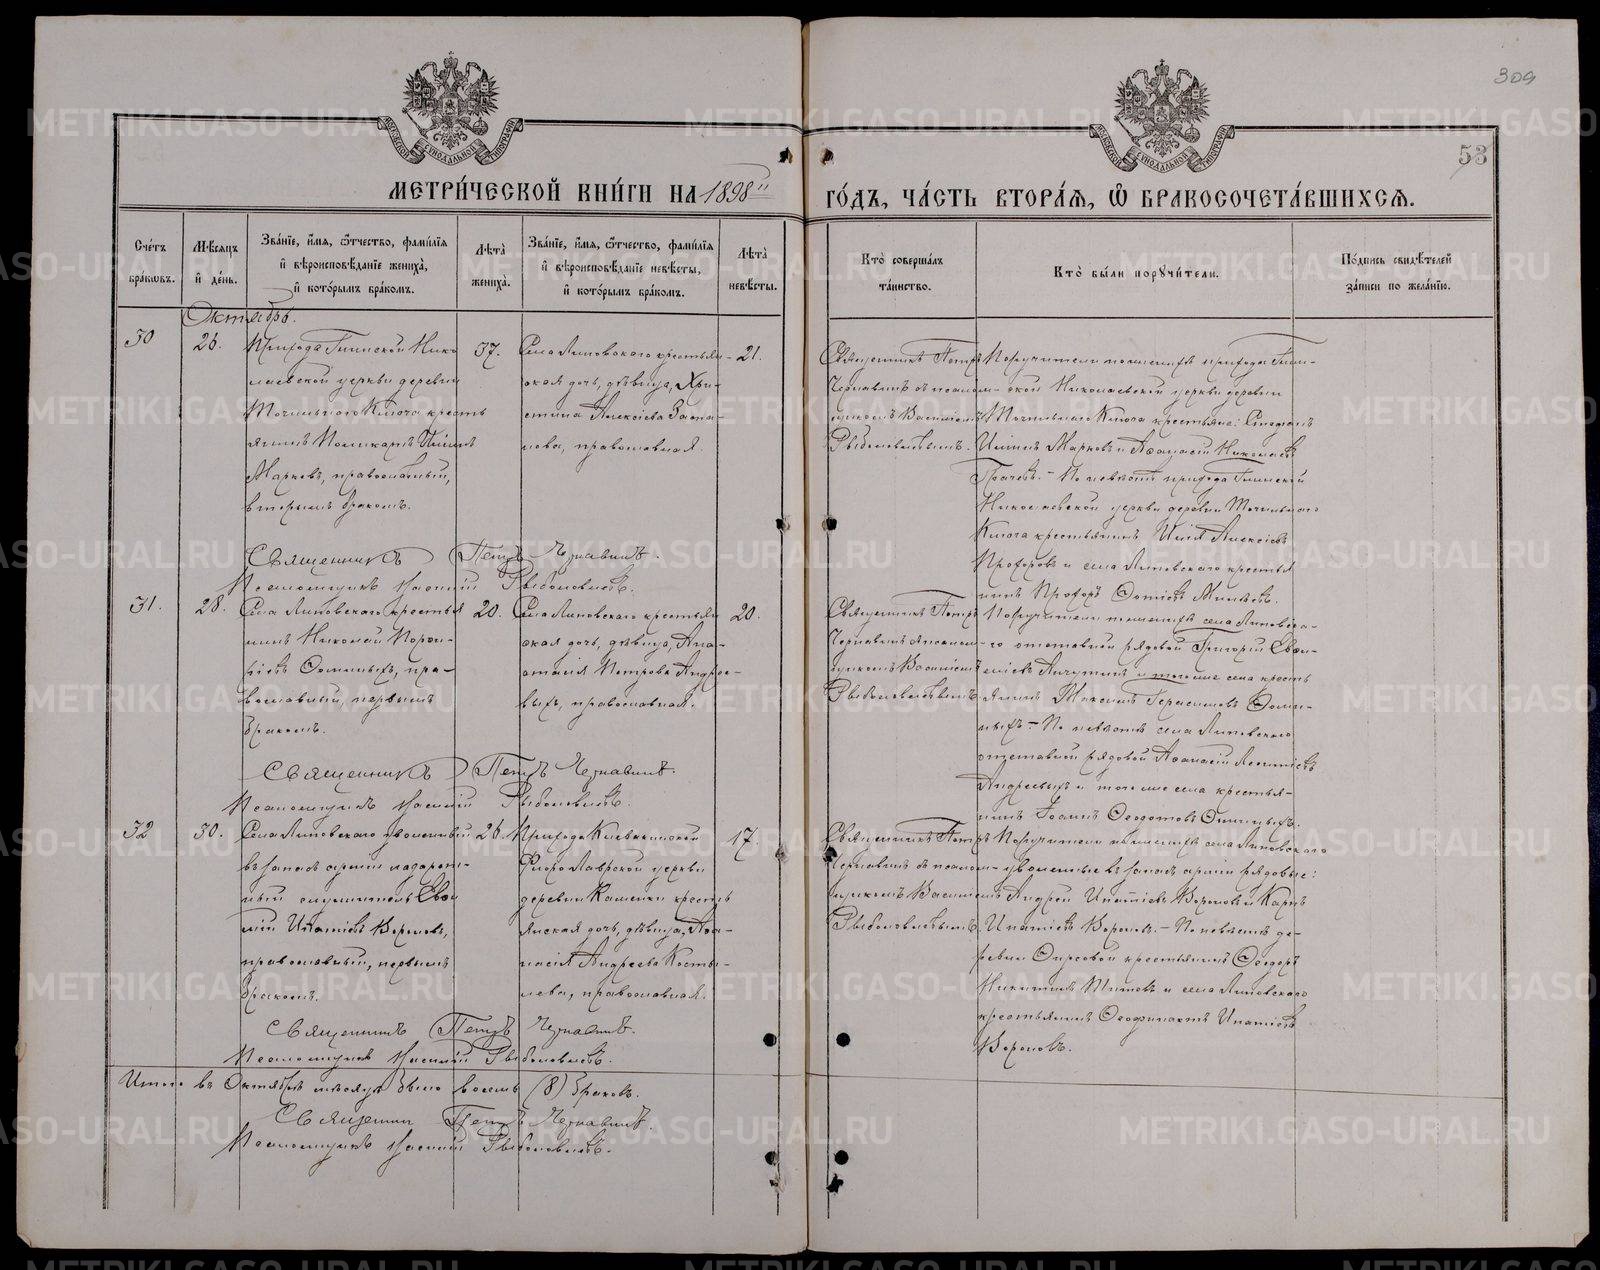 309
53
МОСКОВСКОЙ СУНОДАЛЬНОЙ ТИПОГРАФІИ
МОСКОВСКОЙ СУНОДАЛЬНОЙ ТИПОГРАФІИ
МЕТРИ́ЧЕСКОЙ КНИ́ГИ НА 1898й ГО́ДЪ, ЧА́СТЬ ВТОРА́Я, Ѿ БРАКОСОЧЕТА́ВШИХСЯ.
Сче́тъ бра́ковъ.
Мѣ́сяцъ и҆ де́нь.
Зва́нїе, и҆́мя, ѻ҆́тчество, фами́лїя и҆ вѣроисповѣ́данїе жениха̀, и҆ кото́рымъ бра́комъ.
Лѣ́та жениха̀.
Зва́нїе, и҆́мя, ѻ҆́тчество, фами́лїя и҆ вѣроисповѣ́данїе невѣ́сты, и҆ кото́рымъ бра́комъ.
Лѣ́та невѣ́сты.
Кто̀ соверша́лъ та́инство.
Кто̀ бы́ли порꙋчи́тели.
По́дпись свидѣ́телей за́писи по жела́нїю.
Октябрь.
30
26.
Прихода Глинской Нико
лаевской церкви деревни
Точильнаго Ключа кресть
янинъ Поликарпъ Іпіинъ
Марковъ, православный,
вторымъ бракомъ.
37.
Села Липовскаго крестьян-
ская дочь, дѣвица, Хри-
стина Алексіева
православная.
21.
Священникъ Петръ
Чернавинъ съ псалом-
щикомъ Василіемъ
Рыболовлевымъ.
Поручители по женихѣ прихода Глин-
ской Николаевской церкви деревни
Точильнаго Ключа крестьяне:
Марковъ и Аѳанасій Николаевъ
Грачевъ. — По невѣстѣ прихода Глинской
Николаевской церкви деревни Точильнаго
Ключа крестьянинъ Илія Алексіевъ
Прохоровъ и села Липовскаго крестья
нинъ Прохоръ Минѣевъ.
Священникъ Петръ Чернавинъ.
Псаломщикъ Василій Рыболовлевъ.
31.
28.
Села Липовскаго крестья
нинъ Николай Порфи-
ріевъ православный, первымъ
бракомъ.
20.
Села Липовскаго крестьян
ская дочь, дѣвица, Ана-
стасія Петрова Андрее-
выхъ, православная.
20.
Священникъ Петръ
Чернавинъ съ псалом-
щикомъ Василіемъ
Рыболовлевымъ.
Поручители по женихѣ села Липовска-
го отставной рядовой Григорій
и того же села кресть
янинъ Герасимовъ
По невѣстѣ села Липовскаго
отставной рядовой Аѳанасій Леонтіевъ
Андреевыхъ и того же села крестья-
нинъ Іоаннъ Ѳеодотовъ
Священникъ Петръ Чернавинъ.
Псаломщикъ Василій Рыболовлевъ.
32
30.
Села Липовскаго уволенный
въ запасъ арміи лазарет-
ный служитель
Ипатіевъ Вороновъ,
православный, первымъ
бракомъ.
26.
Прихода Клевакинской
Флоро-Лаврской церкви
деревни Каменки кресть
янская дочь, дѣвица, Аѳа-
насія Андреева Косты-
лева, православная.
17.
Священникъ Петръ
Чернавинъ съ псалом-
щикомъ Василіемъ
Рыболовлевымъ.
Поручители по женихѣ села Липовскаго
уволенные въ запасъ арміи рядовые:
Андрей Ипатіевъ Вороновъ и Карпъ
Ипатіевъ Вороновъ. — По невѣстѣ де-
ревни крестьянинъ Ѳеодоръ
Никитинъ Титовъ и села Липовскаго
крестьянинъ Ѳеофилактъ Ипатіевъ
Вороновъ.
Священникъ Петръ Чернавинъ.
Псаломщикъ Василій Рыболовлевъ.
Итого въ Октябрѣ мѣсяцѣ было восемь (8) браковъ.
Священникъ Петръ Чернавинъ.
Псаломщикъ Василій Рыболовлевъ.
METRIKI.GASO-URAL.RU